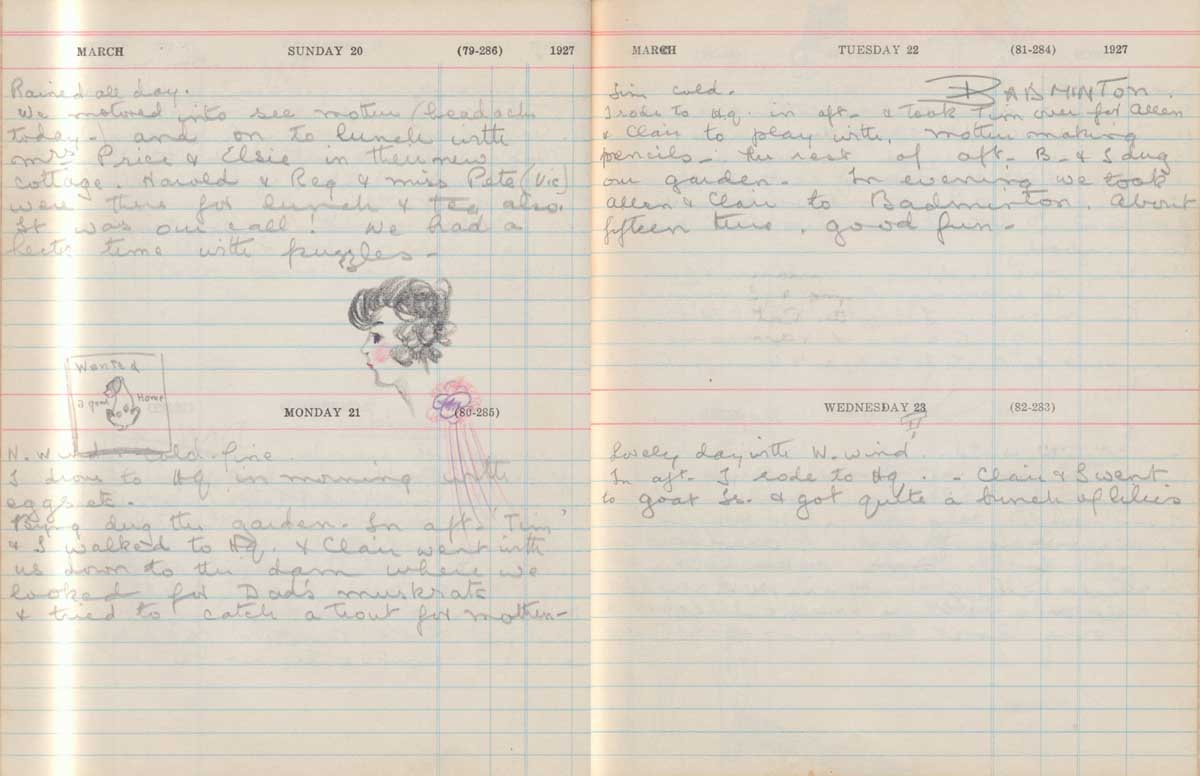 MARCH SUNDAY 20 (79-286) 1927
Rained all day.
We motored into see mother (headach
today-) and on to lunch with
mrs Price & Elsie in their new
cottage. Harold & Reg & miss Pete (Vic)
were there for lunch & tea also.
It was our call! We had a
hectic time with puzzles -
Wanted
a good Home
MONDAY 21 (80-285)
N.W wind. cold. fine.
I drove to Hq in morning with
eggs etc.
dug the garden. In aft. 'Tim'
& I walked to Hq. & Clair went with
us down to the dam where we
looked for Dad's muskrats
& tried to catch a trout for mother-
MARCH TUESDAY 22 (81-284) 1927
cold. BADMINTON.
I rode to Hq. in aft- & took Tim over for Allen
& Clair to play with, mother making
pencils- the rest of aft- B- & I dug
our garden. In evening we took
Allen & Clair to Badminton. About
fifteen there, good fun-
WEDNESDAY 23 (82-283)
lovely day with W. wind
In aft- I rode to Hq. - Clair & I went
to goat Is. & got quite a bunch of lilies